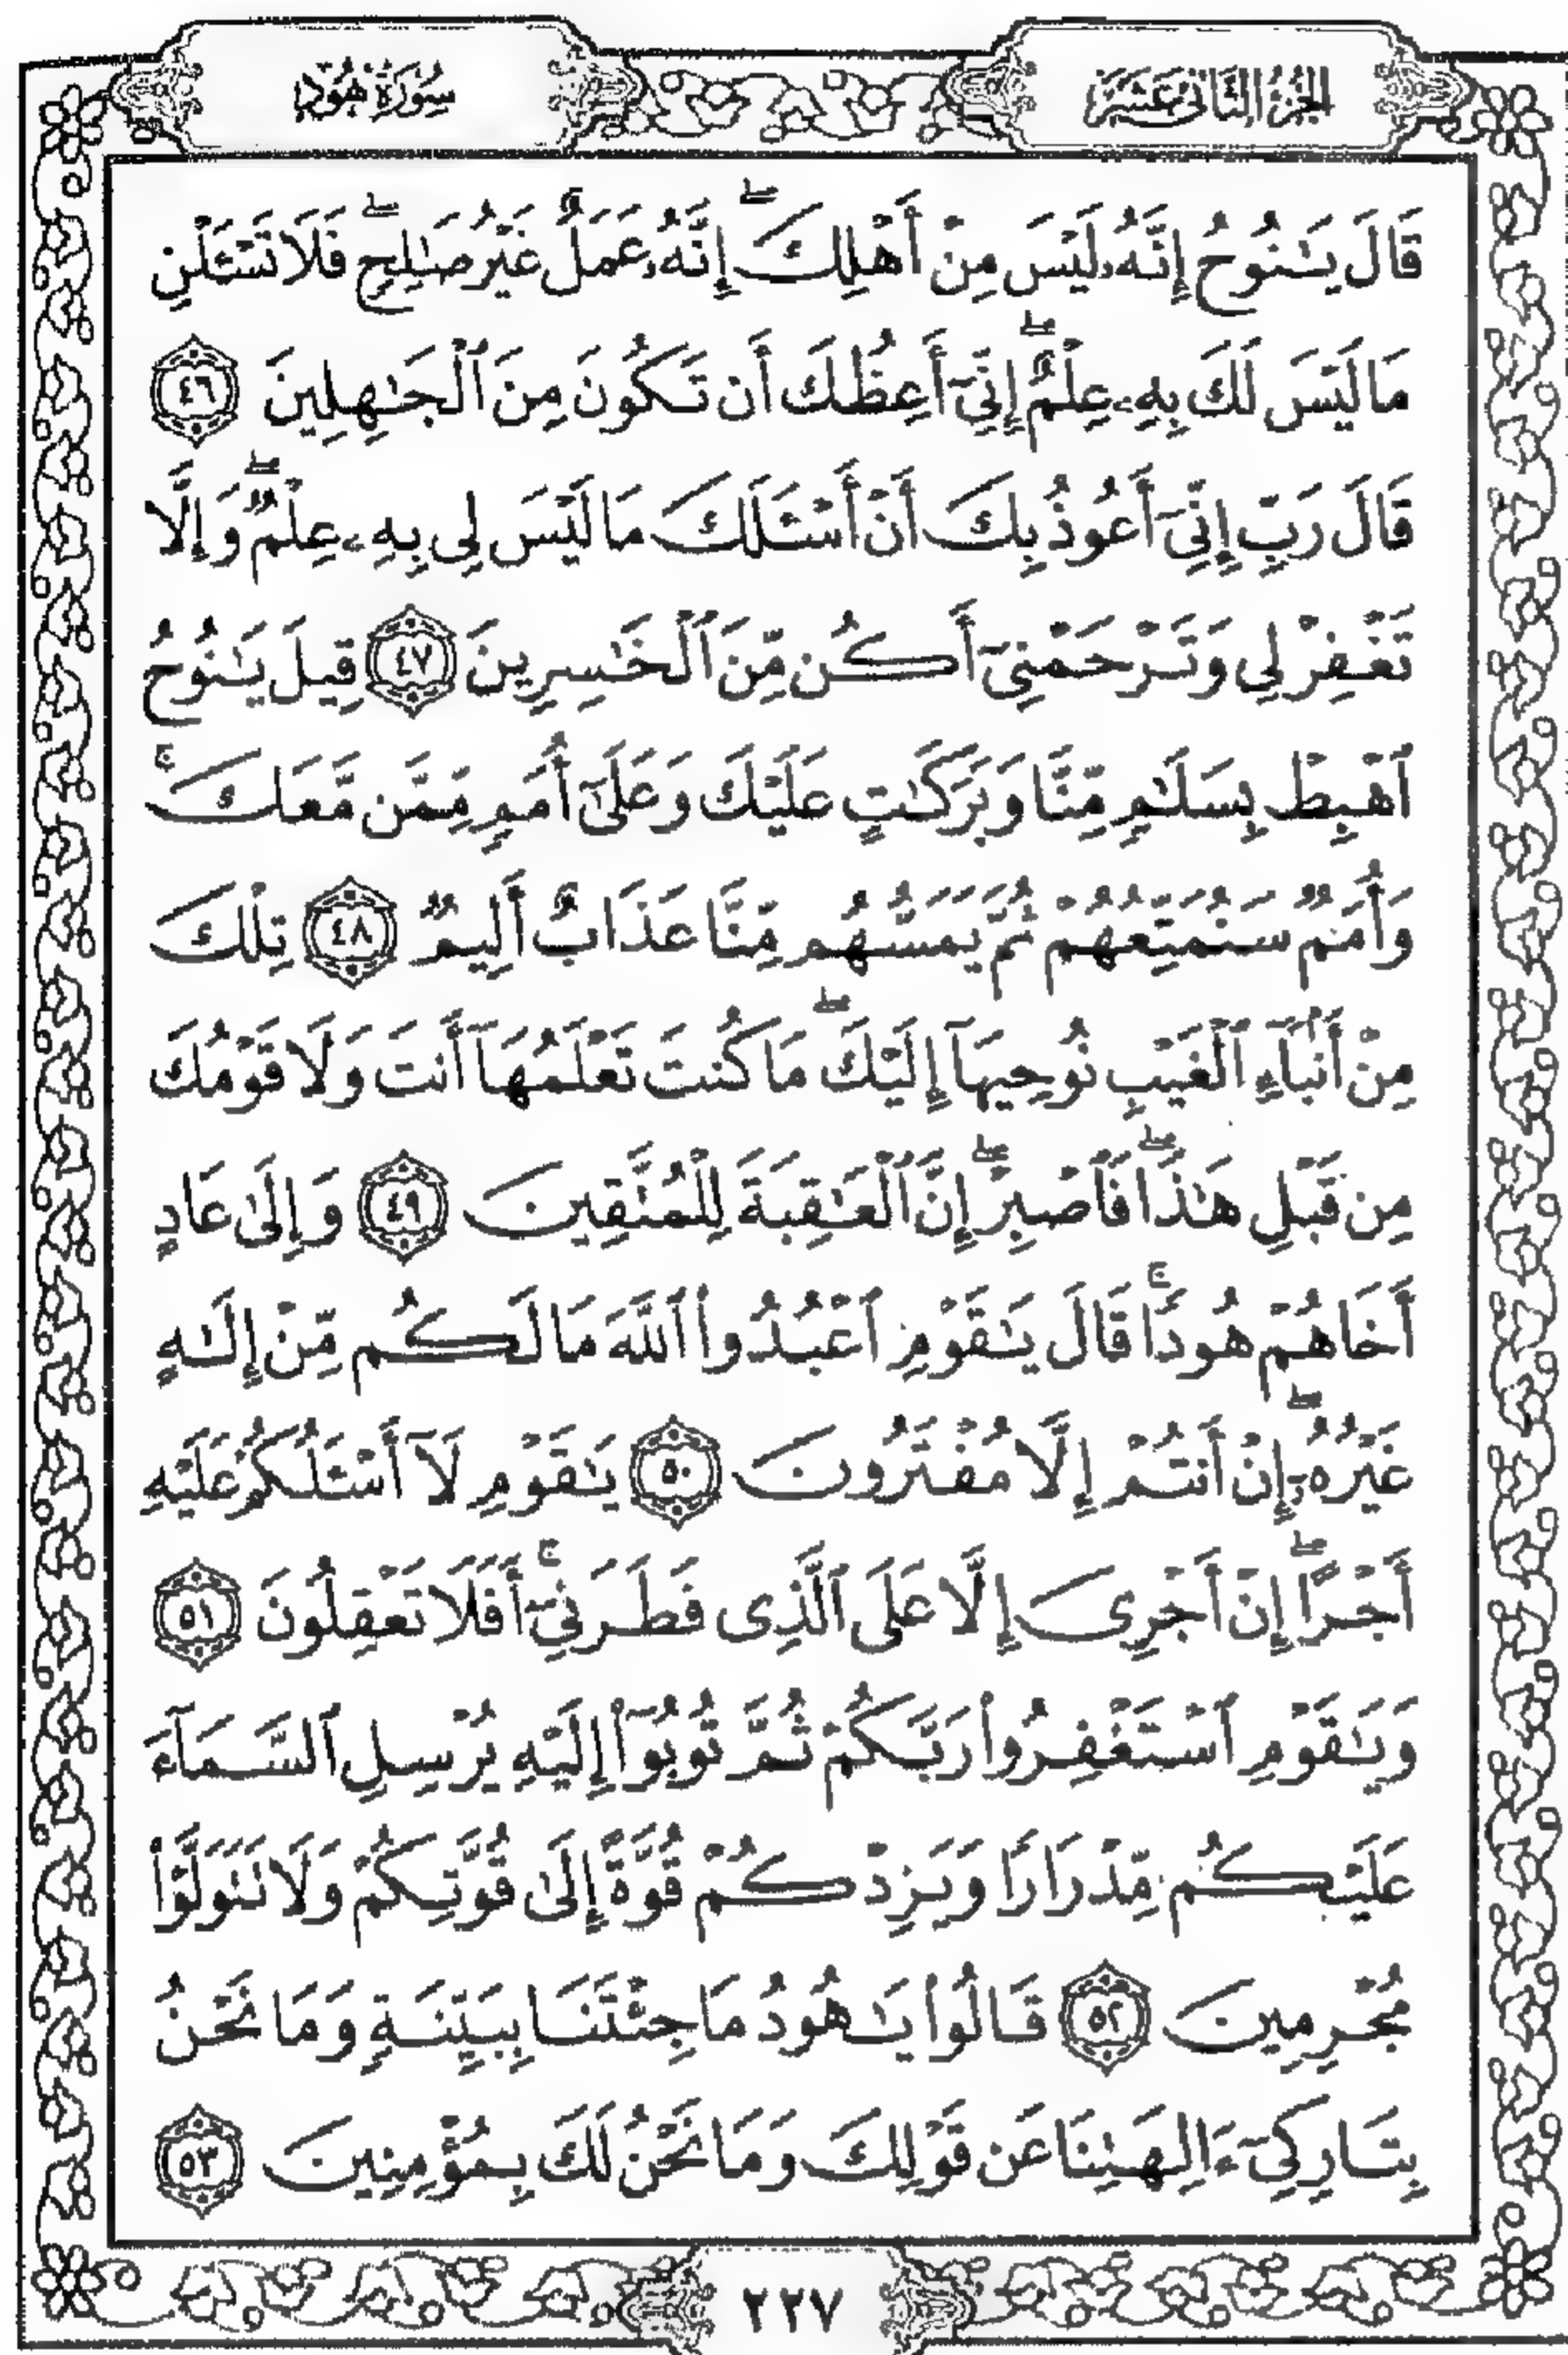 الجزء الثاني عشر
سورة هود
قَالَ يَٰنُوحُ إِنَّهُۥ لَيْسَ مِنْ أَهْلِكَ ۖ إِنَّهُۥ عَمَلٌ غَيْرُ صَٰلِحٍ ۖ فَلَا تَسْـَٔلْنِ
مَا لَيْسَ لَكَ بِهِۦ عِلْمٌ ۖ إِنِّىٓ أَعِظُكَ أَن تَكُونَ مِنَ ٱلْجَٰهِلِينَ ٤٦
قَالَ رَبِّ إِنِّىٓ أَعُوذُ بِكَ أَنْ أَسْـَٔلَكَ مَا لَيْسَ لِى بِهِۦ عِلْمٌ ۖ وَإِلَّا
تَغْفِرْ لِى وَتَرْحَمْنِىٓ أَكُن مِّنَ ٱلْخَٰسِرِينَ ٤٧ قِيلَ يَٰنُوحُ
ٱهْبِطْ بِسَلَٰمٍ مِّنَّا وَبَرَكَٰتٍ عَلَيْكَ وَعَلَىٰٓ أُمَمٍ مِّمَّن مَّعَكَ ۚ
وَأُمَمٌ سَنُمَتِّعُهُمْ ثُمَّ يَمَسُّهُم مِّنَّا عَذَابٌ أَلِيمٌ ٤٨ تِلْكَ
مِنْ أَنۢبَآءِ ٱلْغَيْبِ نُوحِيهَآ إِلَيْكَ ۖ مَا كُنتَ تَعْلَمُهَآ أَنتَ وَلَا قَوْمُكَ
مِن قَبْلِ هَٰذَا ۖ فَٱصْبِرْ ۖ إِنَّ ٱلْعَٰقِبَةَ لِلْمُتَّقِينَ ٤٩ وَإِلَىٰ عَادٍ
أَخَاهُمْ هُودًا ۚ قَالَ يَٰقَوْمِ ٱعْبُدُوا۟ ٱللَّهَ مَا لَكُم مِّنْ إِلَٰهٍ
غَيْرُهُۥٓ ۖ إِنْ أَنتُمْ إِلَّا مُفْتَرُونَ ٥٠ يَٰقَوْمِ لَآ أَسْـَٔلُكُمْ عَلَيْهِ
أَجْرًا ۖ إِنْ أَجْرِىَ إِلَّا عَلَى ٱلَّذِى فَطَرَنِىٓ ۚ أَفَلَا تَعْقِلُونَ ٥١
وَيَٰقَوْمِ ٱسْتَغْفِرُوا۟ رَبَّكُمْ ثُمَّ تُوبُوٓا۟ إِلَيْهِ يُرْسِلِ ٱلسَّمَآءَ
عَلَيْكُم مِّدْرَارًا وَيَزِدْكُمْ قُوَّةً إِلَىٰ قُوَّتِكُمْ وَلَا تَتَوَلَّوْا۟
مُجْرِمِينَ ٥٢ قَالُوا۟ يَٰهُودُ مَا جِئْتَنَا بِبَيِّنَةٍ وَمَا نَحْنُ
بِتَارِكِىٓ ءَالِهَتِنَا عَن قَوْلِكَ وَمَا نَحْنُ لَكَ بِمُؤْمِنِينَ ٥٣
٢٢٧